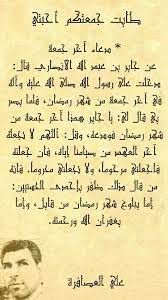 طابت جمعتكم أحبتي
* دعاء آخر جمعة
عن جابر بن عبد الله الأنصاري قال:
دخلت على رسول الله صلى الله عليه وآله
في آخر جمعة من شهر رمضان، فلما بصر
بي قال لي: يا جابر هذا آخر جمعة من
شهر رمضان فودعه، وقل: اللهم لا تجعله
آخر العهد من صيامنا إياه، فان جعلته
فاجعلني مرحوما، ولا تجعلني محروما. فانه
من قال ذلك ظفر بإحدى الحسنيين:
إما ببلوغ شهر رمضان من قابل، وإما
بغفران الله ورحمته.
علي العصافرة